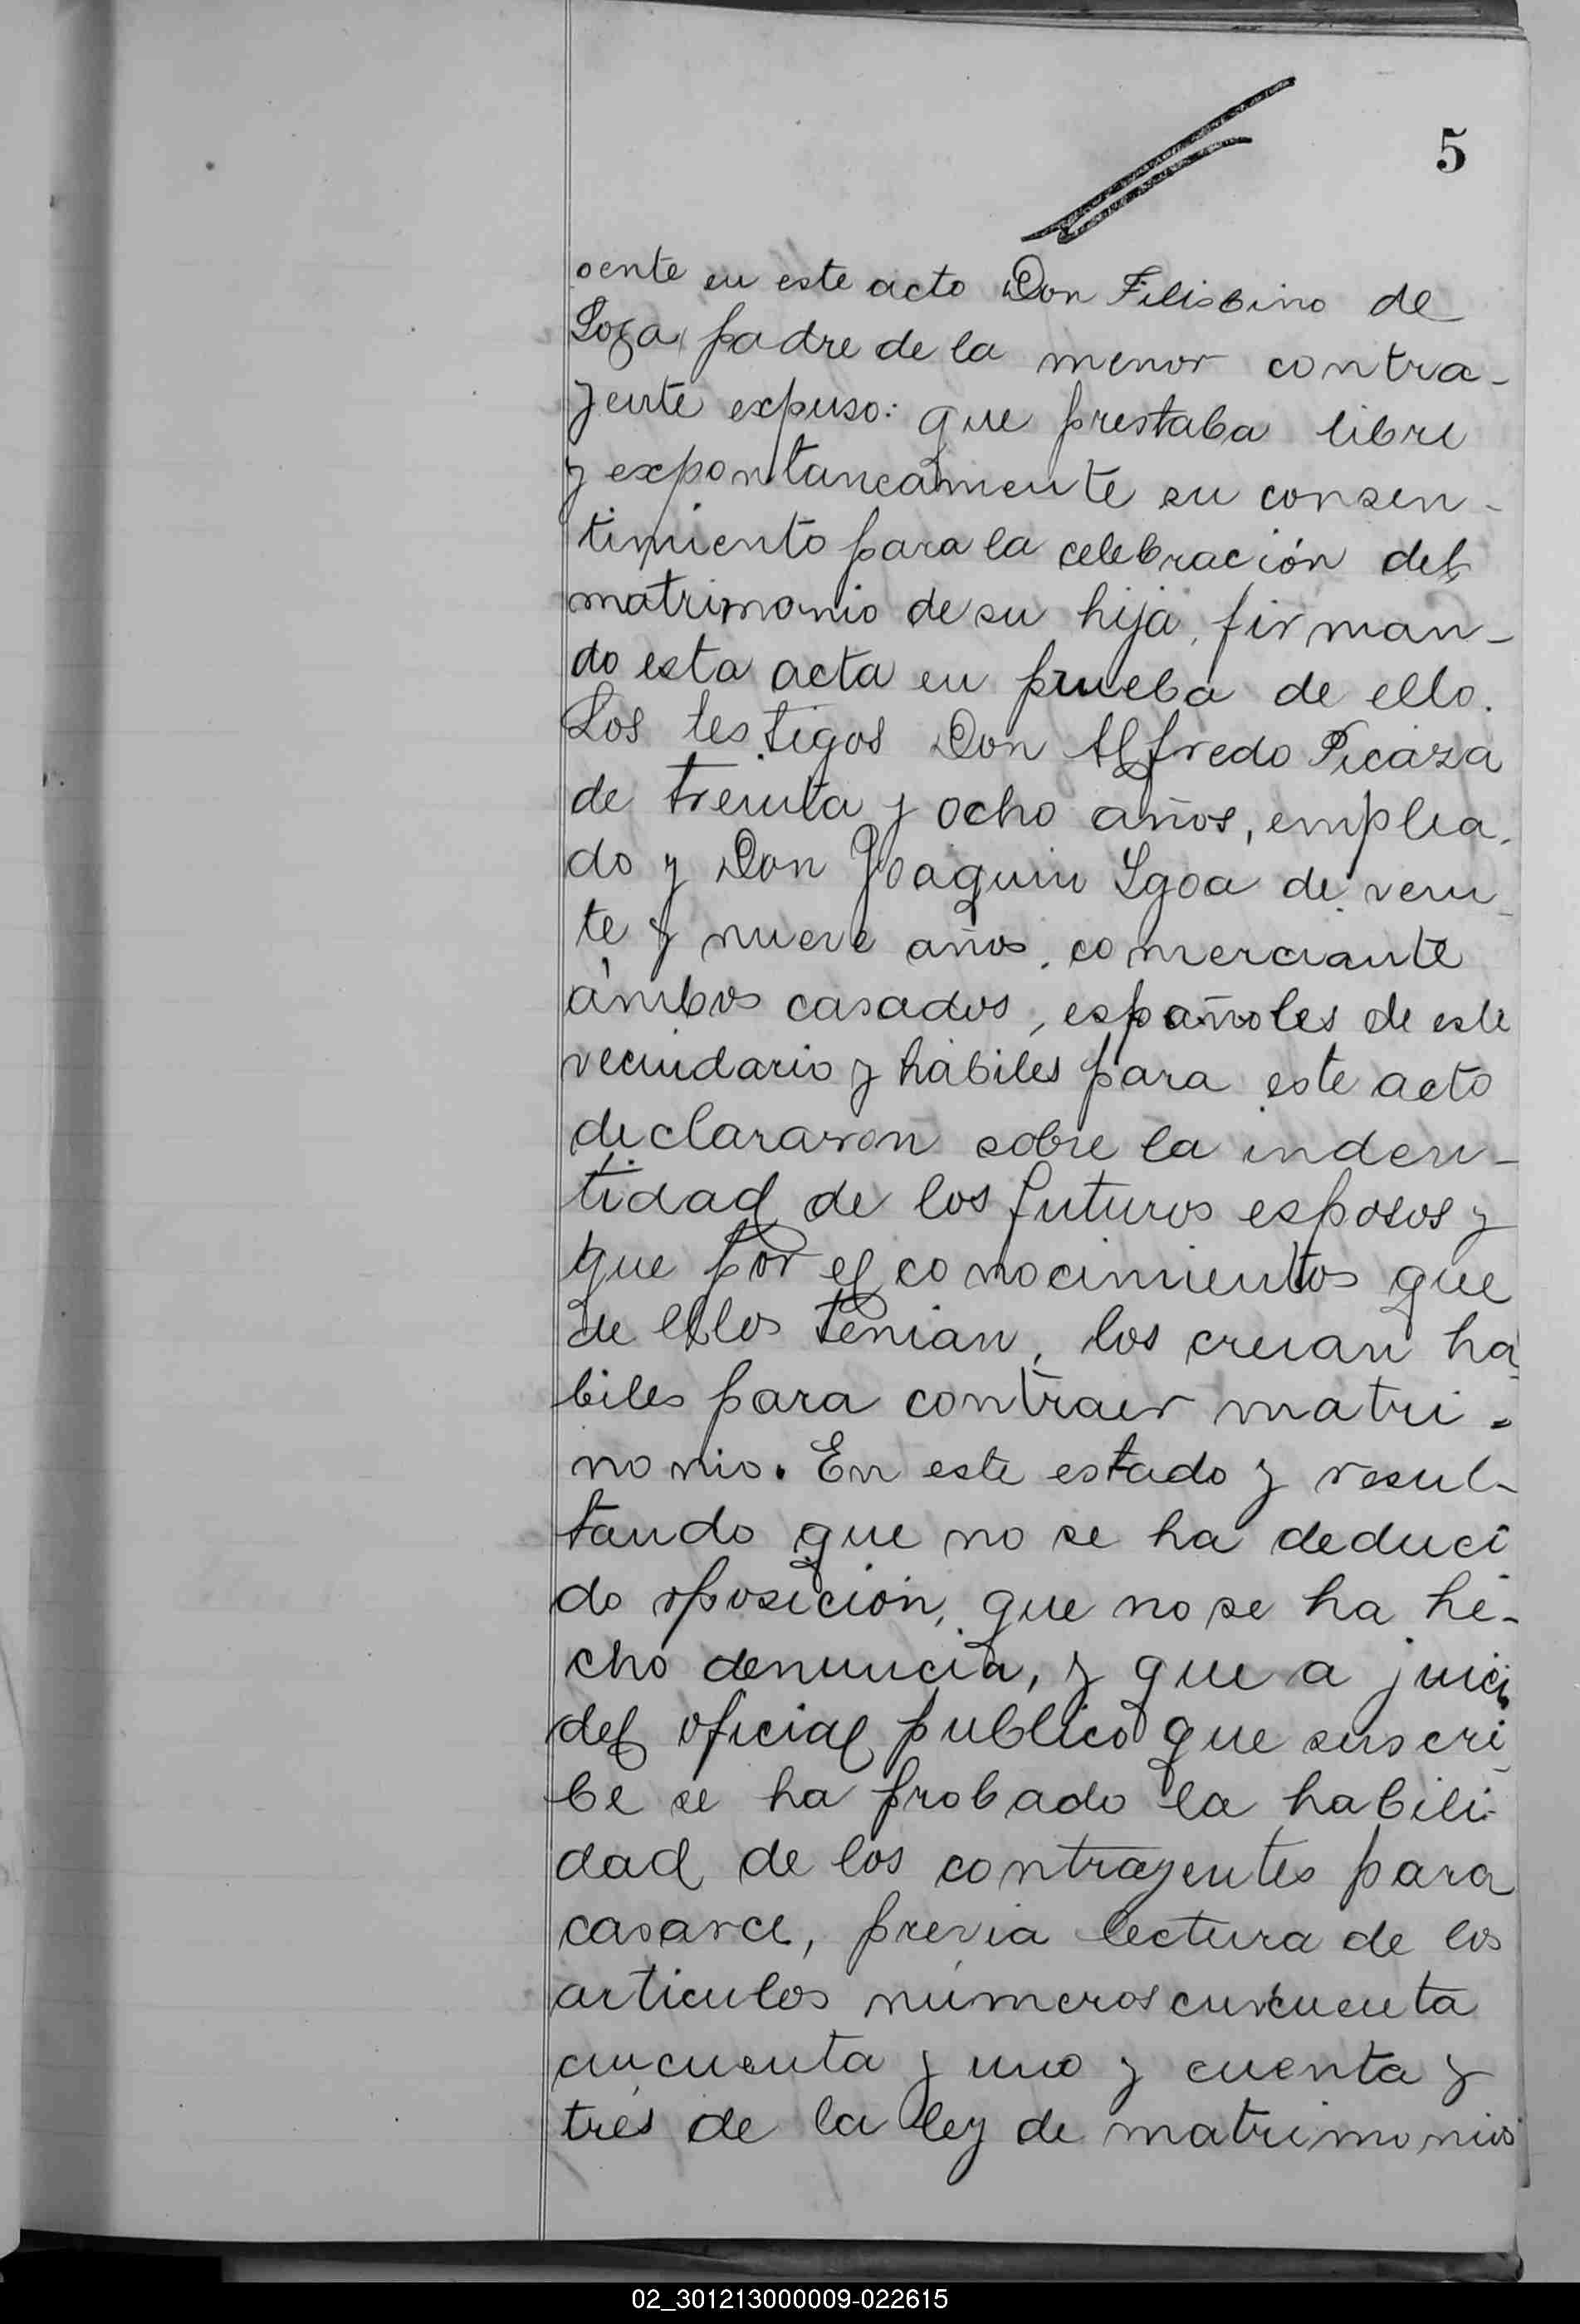 5
sente en este acto Don Filisbino de
Loza, padre de la menor contra-
yente expuso: que prestaba libre
y expontaneamente su consen-
timiento para la celebración del
matrimonio de su hija, firman-
do esta acta en prueba de ello.
Los testigos Don Alfredo Picaza
de treinta y ocho años, emplea-
do y Don Joaquin Igoa de vein
te y nueve años, comerciante
ámbos casados, españoles de este
vecindario y hábiles para este acto
declararon sobre la inden-
tidad de los futuros esposos y
que por el conocimientos que
de ellos tenian, los creian ha
biles para contraer matri-
nonio. En este estado y resul-
tando que no se ha deduci
do oposición, que no se ha he-
cho denuncia, y que a juicio
del oficial publico que suscri
be se ha probado la habili-
dad de los contrayentes para
casarce, previa lectura de los
articulos números cincuenta
cincuenta y uno y cuenta y
tres de la ley de matrimonios
02_301213000009-022615